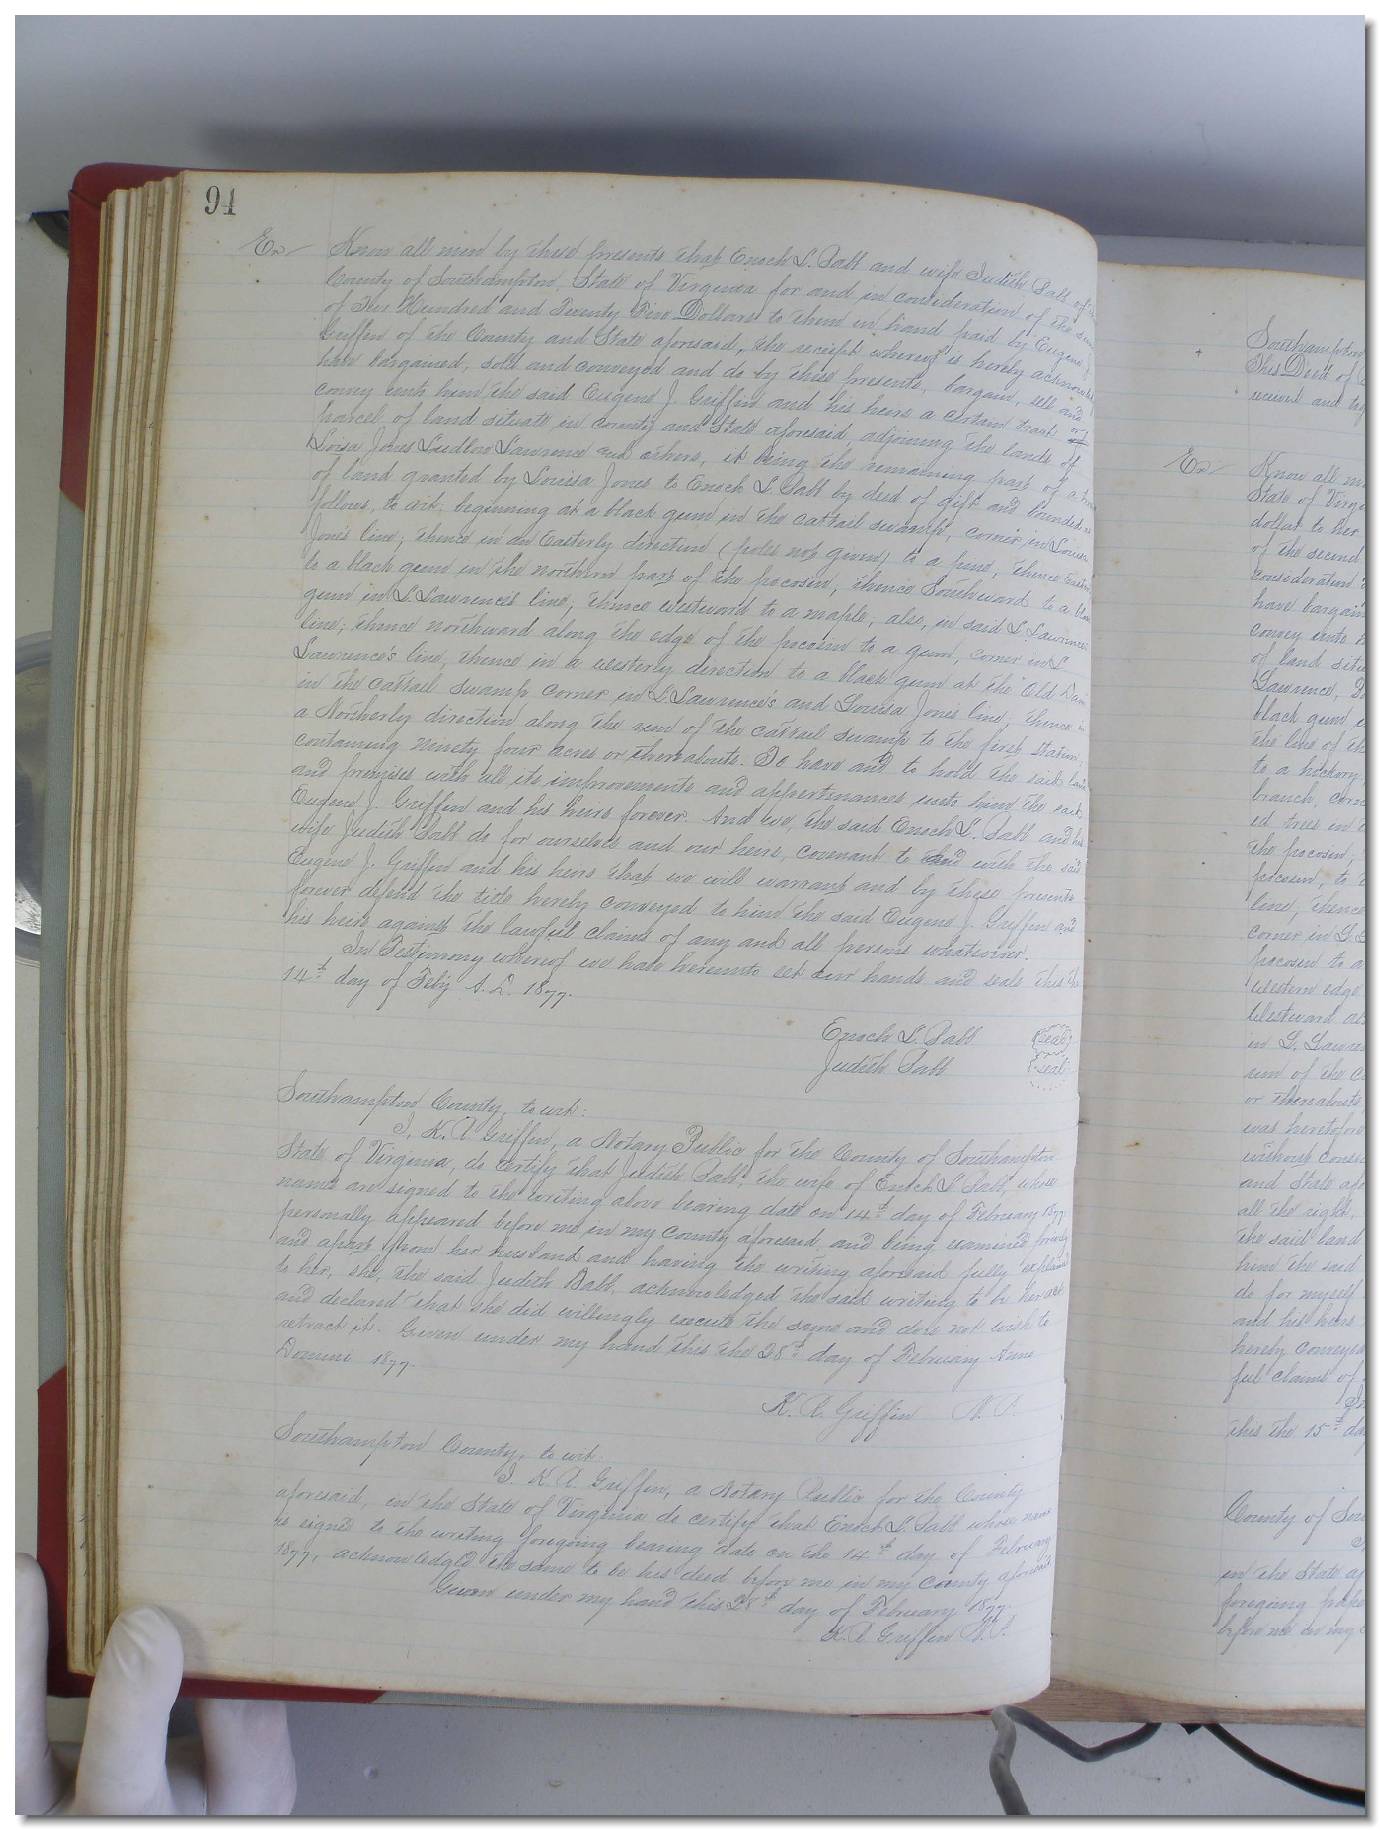 94
Ex
Know all men by these presents that Enoch L. Babb and wife Judith Babb of the
County of Southampton, State of Virginia for and in consideration of the sum
of Ten Hundred and Twenty Five Dollars to them in hand paid by Eugene J.
Griffin of the County and State aforesaid, the receipt whereof is hereby acknowledged
have bargained, sold and conveyed and do by these presents, bargain, sell and
convey unto him the said Eugene J. Griffin and his heirs a certain tract or
parcel of land situate in county and State aforesaid, adjoining the lands of
Loisa Jones Ludlow Lawrence and others, it being the remaining part of a tract
of land granted by Louisa Jones to Enoch L Babb by deed of gift and bounded as
follows, to wit: beginning at a black gum in the cattail swamp, corner in Louisa
Jones line; thence in an Easterly direction (poles not given) to a pine, thence
to a black gum in the northern part of the pocosin; thence Southward to a
gum in L. Lawrence's line; thence westward to a maple, also, in said L. Lawrence's
line; thence northward along the edge of the pocosin to a gum, corner in L
Lawrence's line, thence in a westerly direction to a black gum at the Old Dam
in the cattail swamp corner in L Lawrence's and Louisa Jones line, thence in
a Northerly direction along the run of the cattail swamp to the first station;
containing ninety four acres or thereabouts. To have and to hold the said land
and premises with all its improvements and appertinances unto him the said
Eugene J. Griffin and his heirs forever. And we, the said Enoch L. Babb and his
wife Judith Babb do for ourselves and our heirs, covenant to and with the said
Eugene J. Griffin and his heirs that we will warrant and by these presents
forever defend the title hereby conveyed to him the said Eugene J. Griffin and
his heirs against the lawful claims of any and all persons whatsoever.
In Testimony whereof we have hereunto set our hands and seals this the
14th day of Feby A.D. 1877.
Enoch L. Babb (seal)
Judith Babb (seal)
Southampton County, to wit:
I, K. R. Griffin, a Notary Public for the County of Southampton
State of Virginia, do certify that Judith Babb, the wife of Enoch L Babb, whose
names are signed to the writing above bearing date on 14th day of February 1877
personally appeared before me in my county aforesaid, and being examined privily
and apart from her husband and having the writing aforesaid fully explained
to her, she, the said Judith Babb, acknowledged the said writing to be her act
and declared that she did willingly execute the same and does not wish to
retract it. Given under my hand this the 28th day of February Anno
Domini 1877.
K. R. Griffin N. P.
Southampton County, to wit:
I. K. R. Griffin, a Notary Public for the County
aforesaid, in the State of Virginia do certify that Enoch L. Babb whose name
is signed to the writing foregoing bearing date on the 14th day of February
1877, acknowledged the same to be his deed before me in my County aforesaid
Given under my hand this 28th day of February 1877.
K. R. Griffin N. P.
Southampton
This Deed of
Ex
Know all
State of
dollar to her
of the second
consideration
have
convey unto
of land
Lawrence,
black gum
the line of
to a hickory,
branch,
ed trees in
the pocosin,
pocosin, to
line, thence
corner in
pocosin to a
western edge
Westward
in L.
run of the
or thereabouts
was heretofore
without
and State
all the right,
the said land
him the said
do for myself
and his heirs
hereby conveyed
ful claims of
this the 15th
County of
in the State
foregoing
before me in my